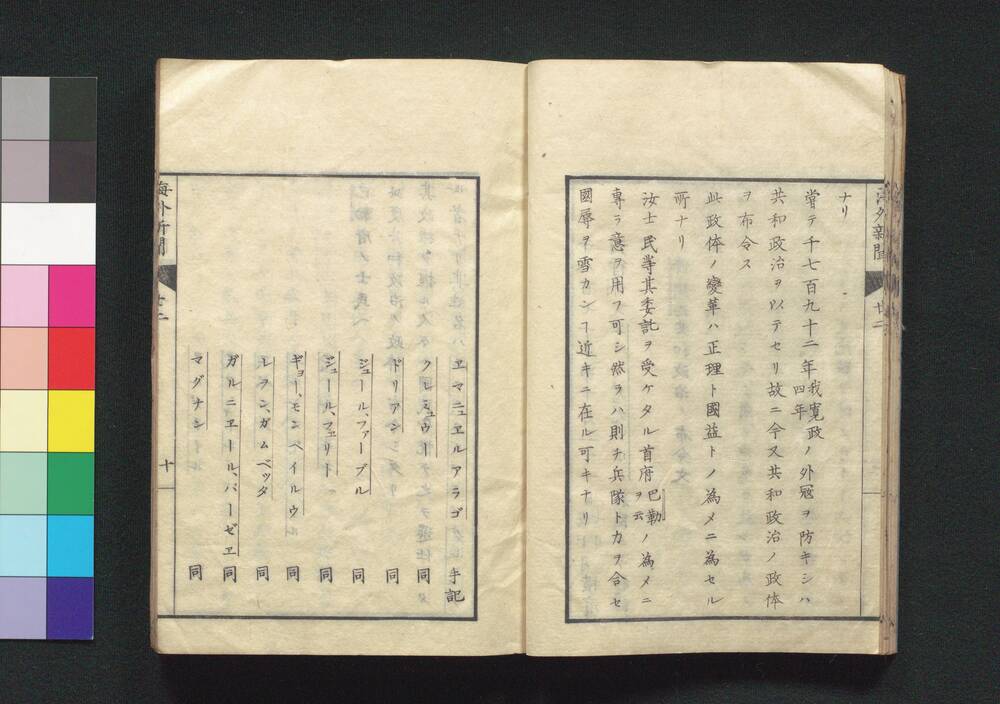 海外新聞
廿二
ナリ
嘗テ千七百九十二年我寛政四年ノ外冦ヲ防キシハ
共和政治ヲ以テセリ故ニ今又共和政治ノ政体
ヲ布令ス
此政体ノ變革ハ正理ト國益トノ為メニ為セル
所ナリ
汝士民等其委託ヲ受ケタル首府巴勒ヲ云ノ為メニ
專ラ意ヲ用フ可シ然ラハ則チ兵隊ト力ヲ合セ
國辱ヲ雪カンヿ近キニ在ル可キナリ
ヱマニュヱルアラゴ 手記
クレミュウー 同
ドリアン 同
ジュール、ファーブル 同
ジュール、フェリー 同
ギョー、モンペイルウ 同
レヲン、ガムベッタ 同
ガルニヱール、パーゼヱ 同
マグナン 同
海外新聞
廿二
十